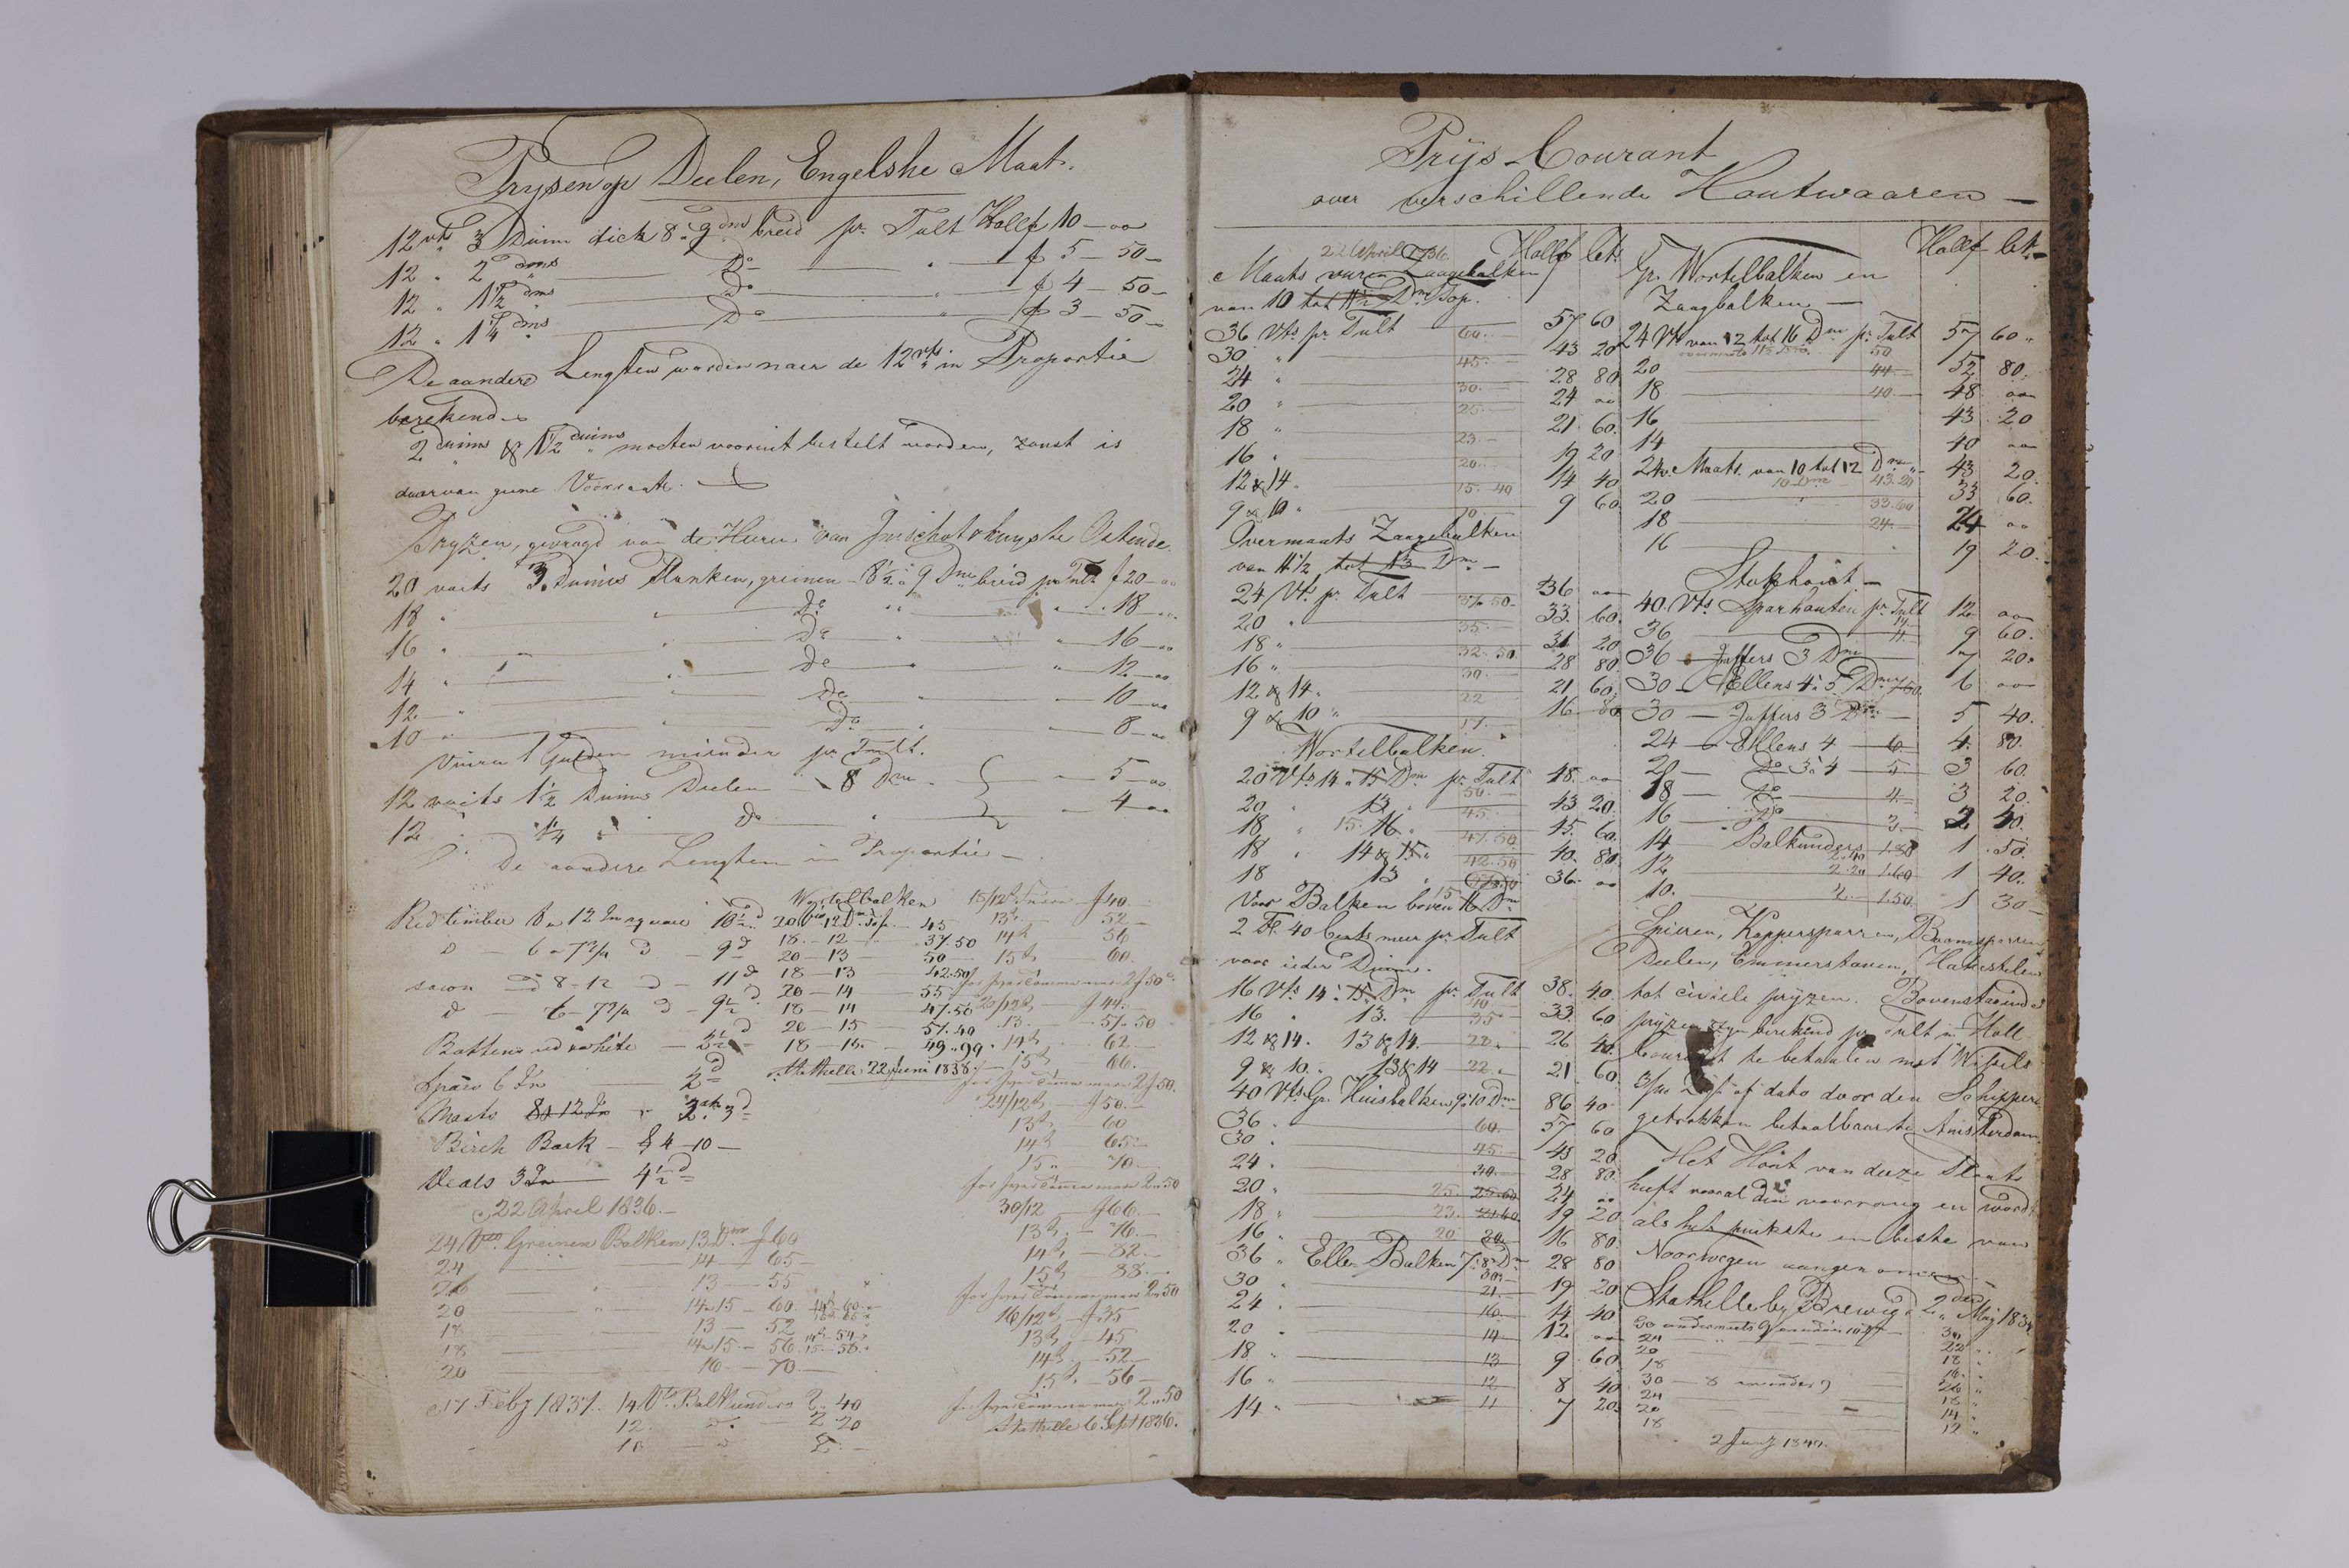 Prysen op Deelen, Engelshe Maat.
12 vts 3 Duim dick 8 a 9 dms breed pr. Tult Hollf 10 — oo
12 " 2 dms — Do — " — f 5 — 50 —
12 " 1½ dms — Do — " — f 4 — 50 —
12 " 1¼ dms — Do — " — f 3 — 50 —
De aandere Lengten worden naer de 12 vts in Proportie
berekend
2 duims & 1½ duims moeten vooruit bestelt worden, zonst is
daarvan geene Voorraat.
Pryzen, gevraagd van de Heeren van Ostende
20 voits 3 Duims Planken, greinen — 8½ a 9 Dms breid pr Tult f 20 — oo
18 " — " — Do " — " — 18 — oo
16 " — " — Do — " — " 16 — oo
14 " — " — Do — " — " 12 — oo
12 — " — " — Do — " — 10 — oo
10 — " — " — Do — " — 8 — oo
Vuiren 1 Gulden minder pr. Tult.
12 voits 1½ Duims Deelen — 8 Dms — 5 — oo
12 " 1¼ " — do — " — 4 — oo
De aandere Lengten in Proportie —
Wortelbalken
Redtimber 8 a 12 In square 10½ d
20 vts 12 Dm Top — 45
d — 6 a 7¾ d — 9 d
18 — 12 — 37.50
20 — 13 — 50
sawn d 8-12 d — 11 d
18 — 13 — 42.50
20 — 14 — 55
d — 6 — 7¾ d — 9½ d
18 — 14 — 47.50
20 — 15 — 57.40
Battens red & white — 3½ d
18 — 15 — 49.99
Spars 6 In — 2 d
Stathelle 22 Juni 1838
Masts 8 a 12 In
Birch Bark — 4 — 10 —
Deals 3 In — 4½ d
22 April 1836. —
24 Vts Greinen Balken 13 Dm f 60
24 — 14 — f 65 —
20 — " — 13 — 55
20 — " — 14 a 15 — 60
18 — 13 — 52
18 — 14 a 15 — 56
20 — 16 — 70
17 Feby 1837. 14 Vts Balkunders 2.40
12 — do — 2 20
10 — do — 2 —
f 40
13 — 52
14 — 56
15 — 60
20/12 — f 44
13 — 57.50
14 — 62
15 — 66
24/12 — f 50. —
13 — 60
14 — 65
15 — 70
30/12 — f 66. —
13 — 76
14 — 82
15 — 88
16/12 — f 35
13 — 45
14 — 52
15 — 56
2.50
Stathelle 6 Sept 1836.
Prijs Courant
over verschillende Houtwaaren —
22 April 1836
Hollf Cts.
Maats vuren Zaagebalken
van 10 tot 11½ Dm Top.
36 Vts pr. Tult — 60. — 57 60
30 " — 45. — 43 20
24 " — 30. — 28 80
20 " — 25. — 24 oo
18 " — 23. — 21 60
16 " — 20. — 19 20
12 & 14 " — 15.40 14 40
9 & 10 " — 10 — 9 60
Overmaats Zaagebalken
van 11½ tot 13 Dm —
24 Vts pr. Tult — 37.50 — 36 oo
20 " — 35. — 33 60
18 " — 32.50 31 20
16 " — 30. — 28 80
12 & 14 " — 22 21 60
9 & 10 " — 17. — 16 80
Wortelbalken.
20 Vts 14 a 15 Dm pr. Tult 50. — 48 oo
20 " 13 " — 45. — 43 20
18 " 15. 16 " — 47.50 45 60
18 " 14 & 15 " — 42.50 40 80
18 13 " — 36 oo
Voor Balken boven 16 Dm
2 Fl. 40 Cents meer pr. Tult
voor ieder Duim.
16 Vts 14 a 15 Dm pr. Tult 40 38 40
16 " 13. — 35 33 60
12 & 14. 13 & 14 — 28. 26 40
9 & 10. 13 & 14 — 22. 21 60
40 Vts Gr. Huisbalken 9 a 10 Dm 86 40
36 " — 60. — 57 60
30 " — 45. — 43 20
24 " — 30. — 28 80
20 " — 25. 24 oo
18 " — 23. 19 20
16 " — 20 16 80
36 " Ellen Balken 7 a 8 Dm 30 — 28 80
30 " — 21. — 19 20
24 " — 16. — 14 40
20 " — 14 12 oo
18 " — 13 9 60
16 " — 12 8 40
14 " — 11 7 20
Hollf Ct.
Gr. Wortelbalken en
Zaagbalken —
24 Vts van 12 tot 16 Dm pr. Tult 57 60
20 — 44. — 52 80
18 — 40. — 48 oo
16 — 43 20
14 — 40 oo
24 Maats. van 10 tot 12 Dm 43 20
10 Dm — 43.20
20 — 33.60 33 60
18 — 24. — 24 oo
16 — 19 20
Stokhout —
40 Vts Sparhouten pr. Tult 12 oo
36 — 11. — 9 60
36 — Juffers 3 Dm — 7 20
30 — Ellens 4 a 5 Dm 7.50 6 oo
30 — Juffers 3 Dm — 5 40
24 — Ellens 4 — 6 — 4 80
20 — Do 3 a 4 — 5 — 3 60
18 — Do — 4. — 3 20
16 — Do — 3. — 2 40
14 — Balkunders 1.80 1 50
12 — 2.20 1.60 1 40
10 — 2. — 1.50 1 30 —
Spieren, Kappersparren, Boomsparren
Deelen, Emmerstaven, Hakestelen
tot civiele prijzen. Bovenstaande
pryzen zyn berekend pr Tult in Holl.
Courant te betaalen met Wissels
3/m dato door den Schipper
getrokken betaalbaar te Amsterdam.
Het Hout van deeze Plaats
heeft vooral den voorrang en wordt
als het puikste en beste van
Noorwegen aangenomen. —
Stathelle by Brevig d. 2 den May 1834
30 ondermaats 9
24 — 22
20 — 18
18 — 16
30 — 8
24 — 18
20 — 14
18 — 12
2 Juny 1840.